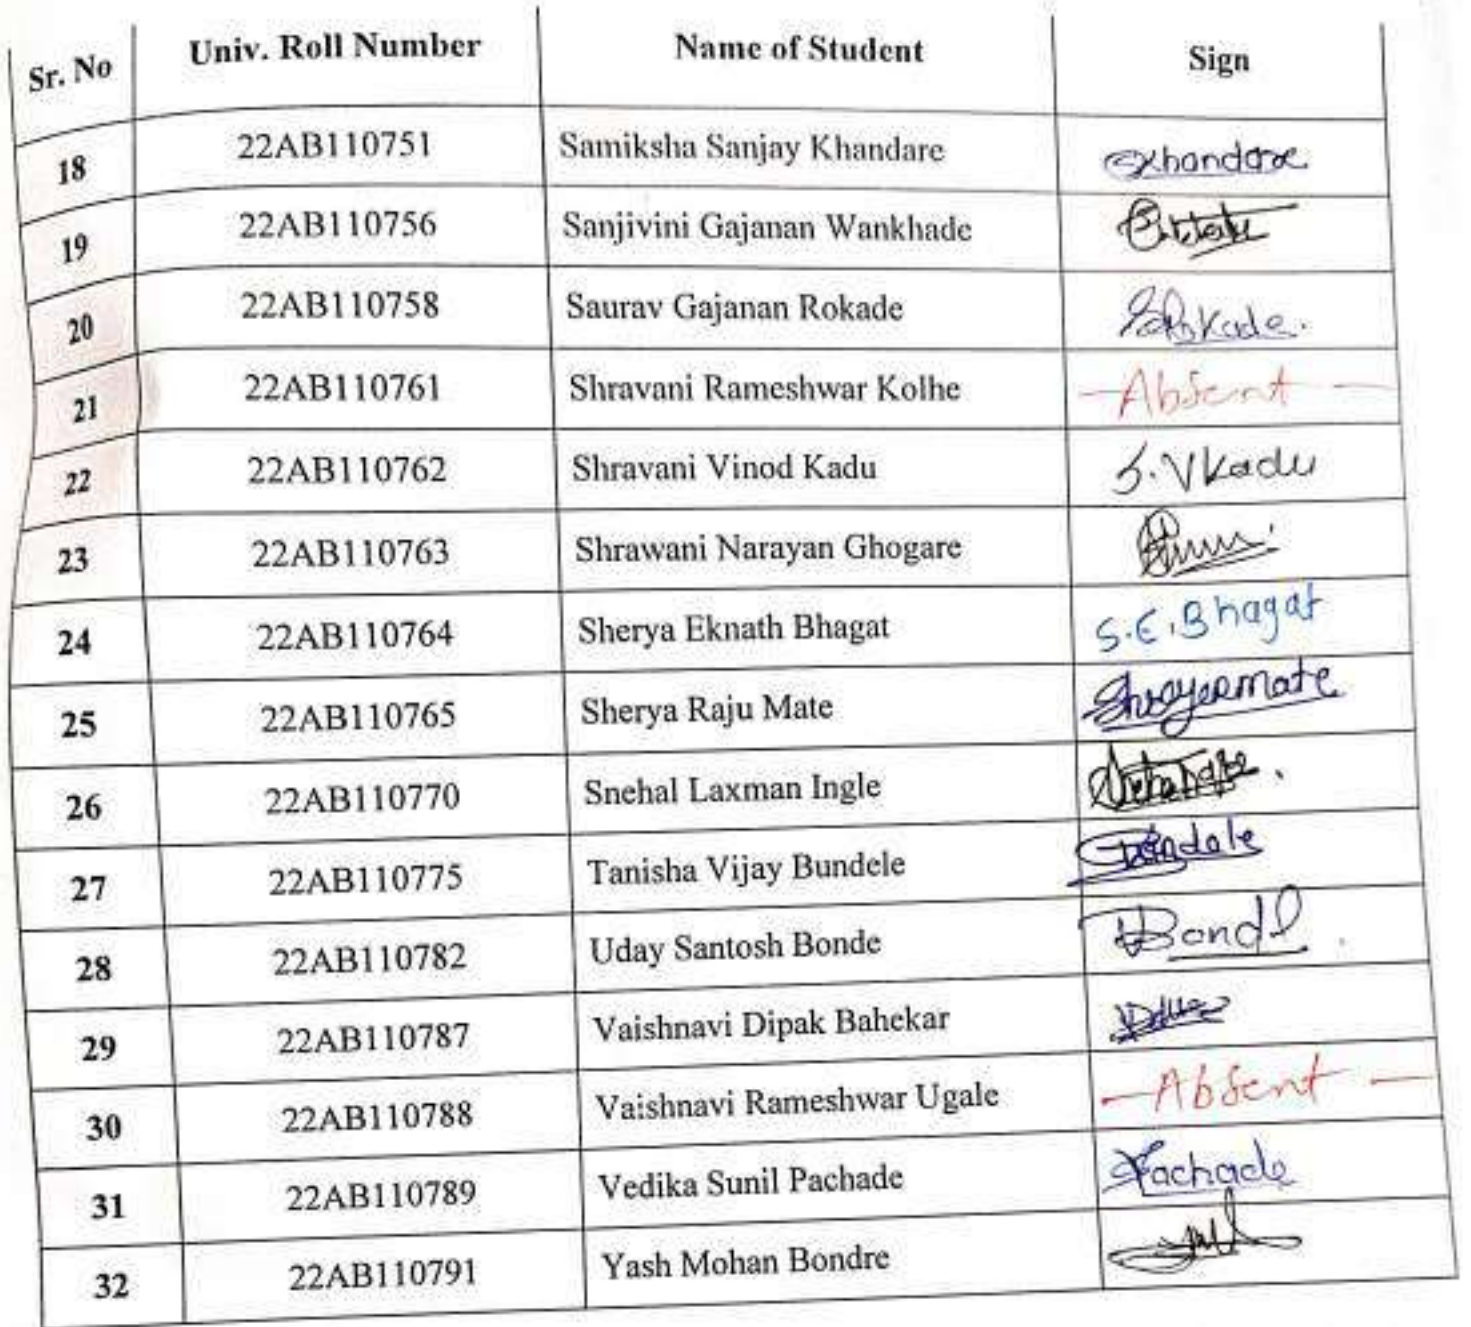 Sr. No Univ. Roll Number Name of Student Sign
18 22AB110751 Samiksha Sanjay Khandare Skhandare
19 22AB110756 Sanjivini Gajanan Wankhade
20 22AB110758 Saurav Gajanan Rokade
21 22AB110761 Shravani Rameshwar Kolhe - Absent -
22 22AB110762 Shravani Vinod Kadu S. V Kadu
23 22AB110763 Shrawani Narayan Ghogare
24 22AB110764 Sherya Eknath Bhagat S.E. Bhagat
25 22AB110765 Sherya Raju Mate Shreyamate
26 22AB110770 Snehal Laxman Ingle
27 22AB110775 Tanisha Vijay Bundele
28 22AB110782 Uday Santosh Bonde
29 22AB110787 Vaishnavi Dipak Bahekar
30 22AB110788 Vaishnavi Rameshwar Ugale - Absent -
31 22AB110789 Vedika Sunil Pachade Pachade
32 22AB110791 Yash Mohan Bondre